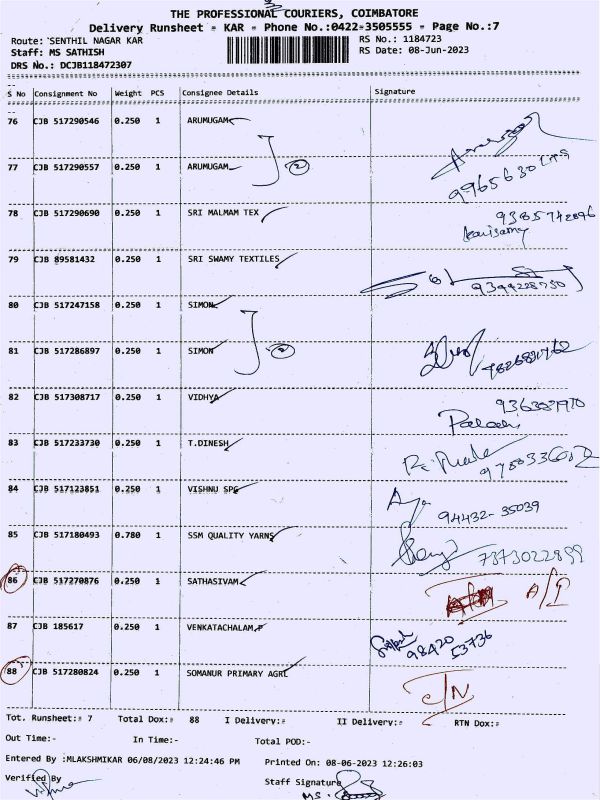 THE PROFESSIONAL COURIERS, COIMBATORE
Delivery Runsheet - KAR - Phone No.:0422-3505555 - Page No.:7
Route: SENTHIL NAGAR KAR RS No.: 1184723
Staff: MS SATHISH RS Date: 08-Jun-2023
DRS No.: DCJB118472307
S No Consignment No Weight PCS Consignee Details Signature
76 CJB 517290546 0.250 1 ARUMUGAM
77 CJB 517290557 0.250 1 ARUMUGAM
78 CJB 517290690 0.250 1 SRI MALMAM TEX
79 CJB 89581432 0.250 1 SRI SWAMY TEXTILES
80 CJB 517247158 0.250 1 SIMON
81 CJB 517286897 0.250 1 SIMON
82 CJB 517308717 0.250 1 VIDHYA
83 CJB 517233730 0.250 1 T.DINESH
84 CJB 517123851 0.250 1 VISHNU SPG 94432-35039
85 CJB 517180493 0.780 1 SSM QUALITY YARNS 7373022899
86 CJB 517270876 0.250 1 SATHASIVAM
87 CJB 185617 0.250 1 VENKATACHALAM.P 98420 53736
88 CJB 517280824 0.250 1 SOMANUR PRIMARY AGRL
Tot. Runsheet:- 7 Total Dox:- 88 I Delivery:- II Delivery:- RTN Dox:-
Out Time:- In Time:- Total POD:-
Entered By :MLAKSHMIKAR 06/08/2023 12:24:46 PM Printed On: 08-06-2023 12:26:03
Verified By Staff Signature
MS.